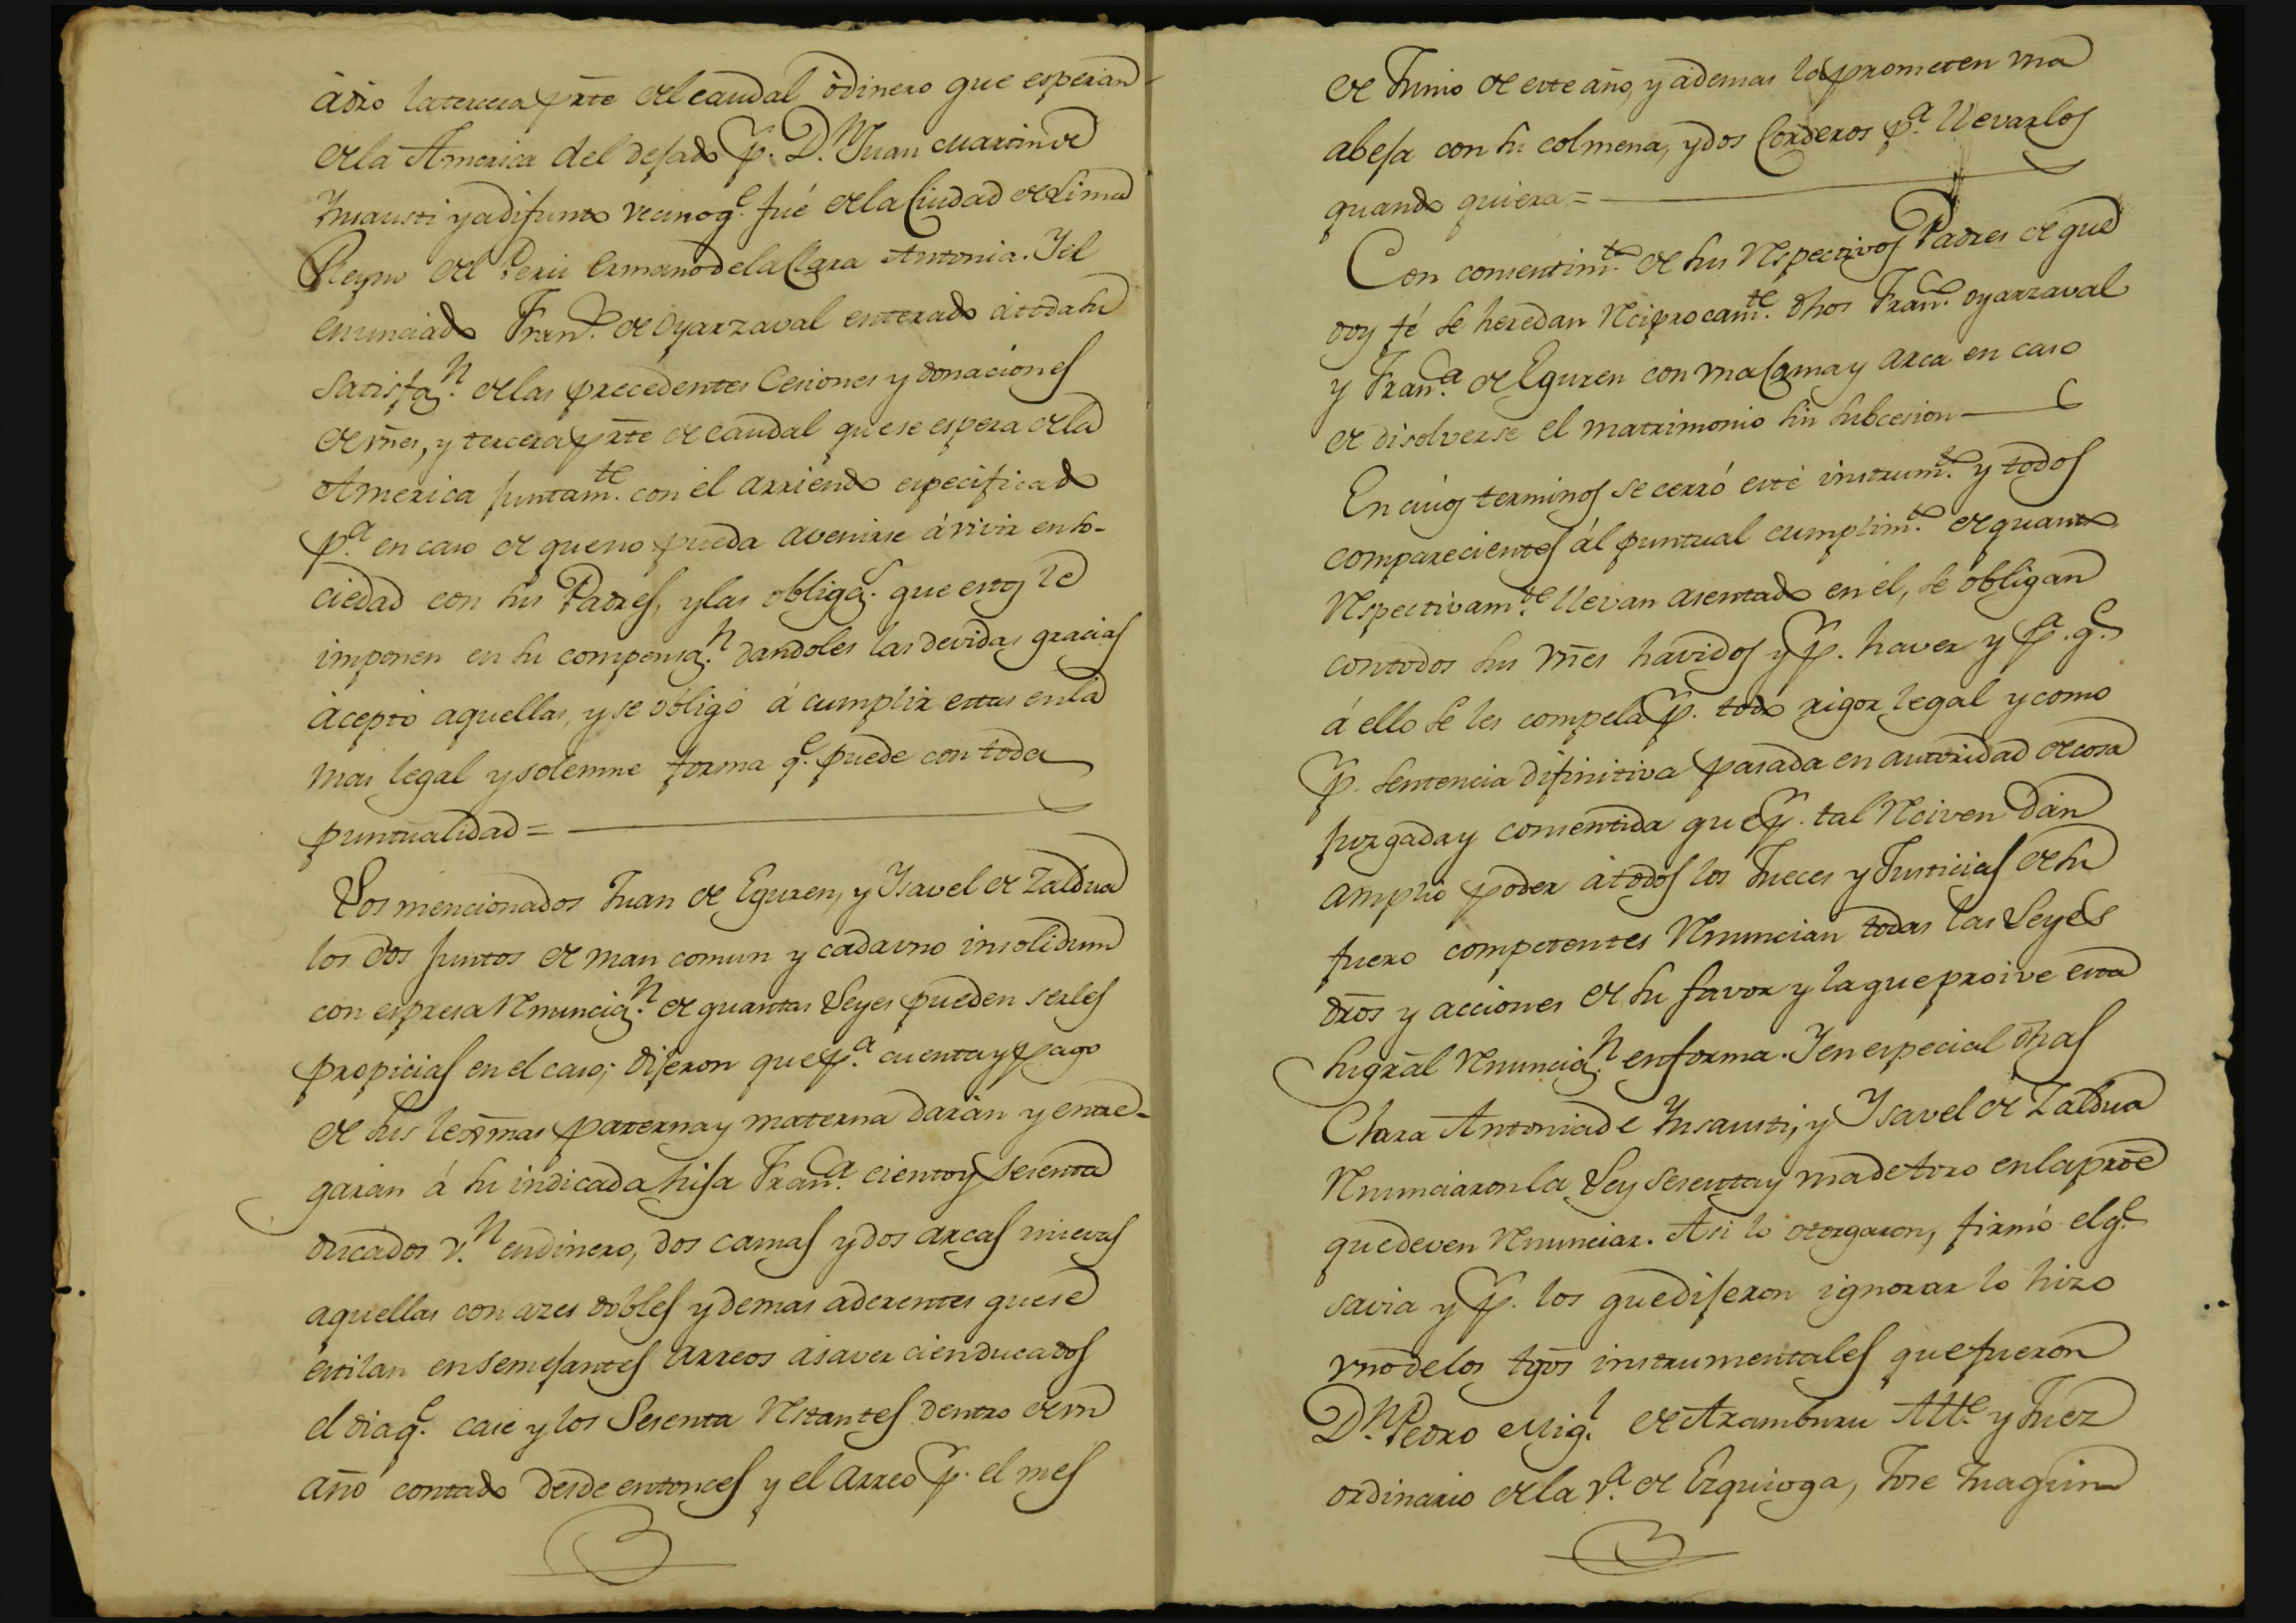 ádro la tercera prte del caudal ò dinero que esperan
de la America del desado p. Dn. Juan Martin de
Insausti ya difunto vecino qe. fué de la Ciudad de Lima
Reyno del Perú ermano de la Clara Antonia. Y el
enunciado Frano. de Oyarzaval enterado á toda su
satisfan. de las precedentes Cesiones y donaciones
de vnes, y tercera prte de caudal que se espera de la
America juntamte. con el arriendo especificado
pa. en caso de que no pueda avenirse á vivir en so-
ciedad con sus Padres, y las obligas. que estos le
imponen en su compensan. dandoles las devidas gracias
ácepto aquellas, y se obligó á cumplir estas en la
mas legal y solemne forma qe. puede con toda
puntualidad =
Los mencionados Juan de Eguren, y Ysavel de Zaldua
los dos juntos de man comun y cada vno insolidum
con espresa renuncian. de quantas Leyes pueden serles
propicias en el caso; dijeron que pa. cuenta y pago
de sus lexmas paterna y materna darán y entre-
garán á su indicada hija Frana. ciento y sesenta
ducados vn. en dinero, dos camas y dos arcas nuevas
aquellas con azes dobles y demas aderentes que se
estilan en semejantes arreos á saver cien ducados
el dia qe. case y los Sesenta restantes dentro de vn
año contado desde entonces y el arreo p. el mes
de Junio de este año, y ademas la prometen vna
abeja con su colmena, y dos Corderos pa. llevarlos
quando quiera =
Con consentimto. de sus respectivos Padres de que
doy fé se heredan reciprocamte. dhos Frano. Oyarzaval
y Frana. de Eguren con vna Cama y arca en caso
de disolverse el matrimonio sin subcesion
En cuios terminos se cerró este instrumto. y todos
comparecientes ál puntual cumplimto. de quanto
respectivamte. llevan asentado en él, se obligan
con todos sus vnes havidos y p. haver y pa. qe.
á ello se les compela p. todo rigor legal y como
p. sentencia difinitiva pasada en autoridad de cosa
juzgada y consentida que p. tal reciven dán
amplio poder á todos los Jueces y Justicias de su
fuero competentes renuncian todas las Leyes
dros y acciones de su favor y la que proive esta
su gral renuncian. en forma. Y en especial dhas
Clara Antonia de Insausti, y Ysavel de Zaldua
renunciaron la Ley sesenta y vna de toro en la proe
que deven renunciar. Asi lo otorgaron, firmó el qe.
savia y p. los que dijeron ignorar lo hizo
vno de los tgos instrumentales que fueron
Dn. Pedro Migl. de Aramburu Alle. y Juez
ordinario de la va. de Ezquioga, Jose Juaquin